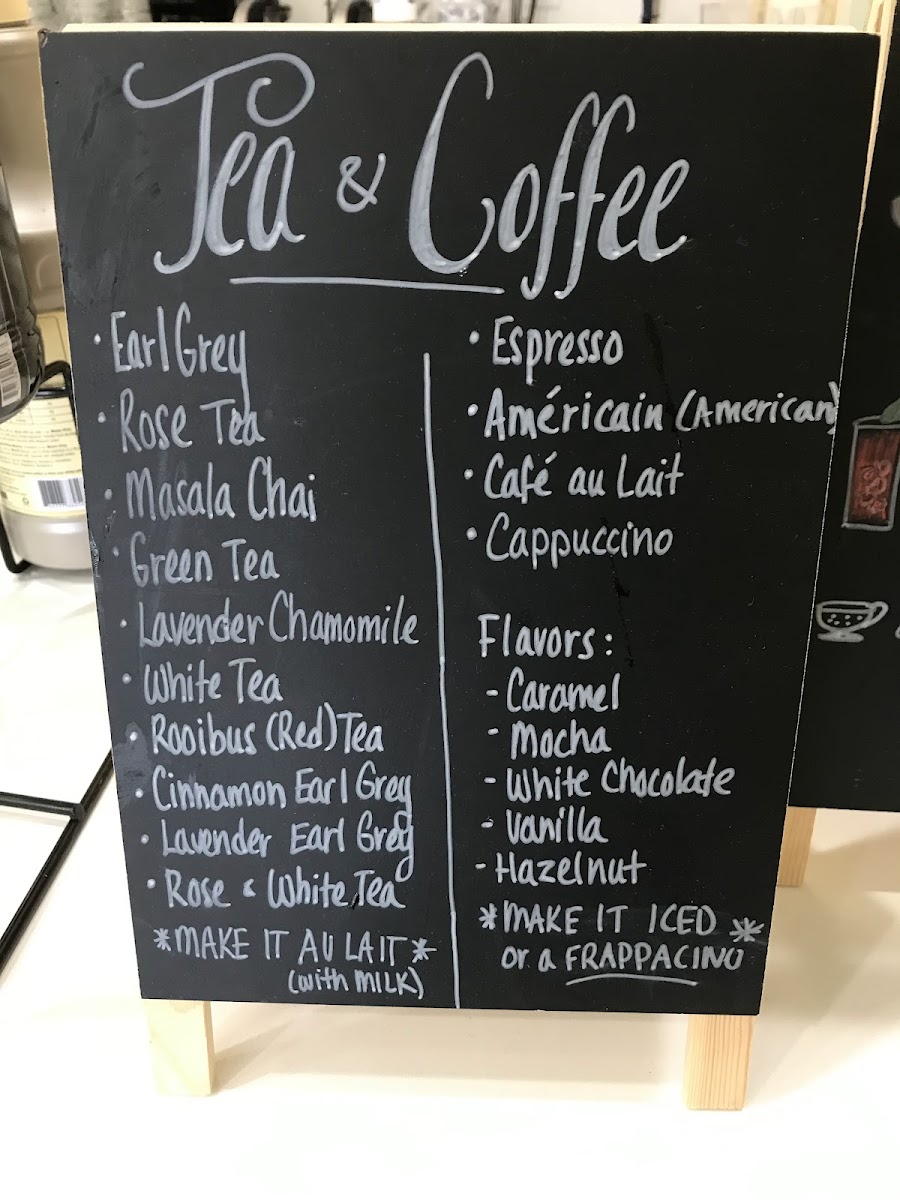 Tea & Coffee
• Earl Grey
• Rose Tea
• Masala Chai
• Green Tea
• Lavender Chamomile
• White Tea
• Rooibus (Red) Tea
• Cinnamon Earl Grey
• Lavender Earl Grey
• Rose & White Tea
*MAKE IT AU LAIT*
(with MILK)
• Espresso
• Américain (American)
• Café au Lait
• Cappuccino
Flavors:
- Caramel
- Mocha
- White Chocolate
- Vanilla
- Hazelnut
*MAKE IT ICED *
or a FRAPPACINO